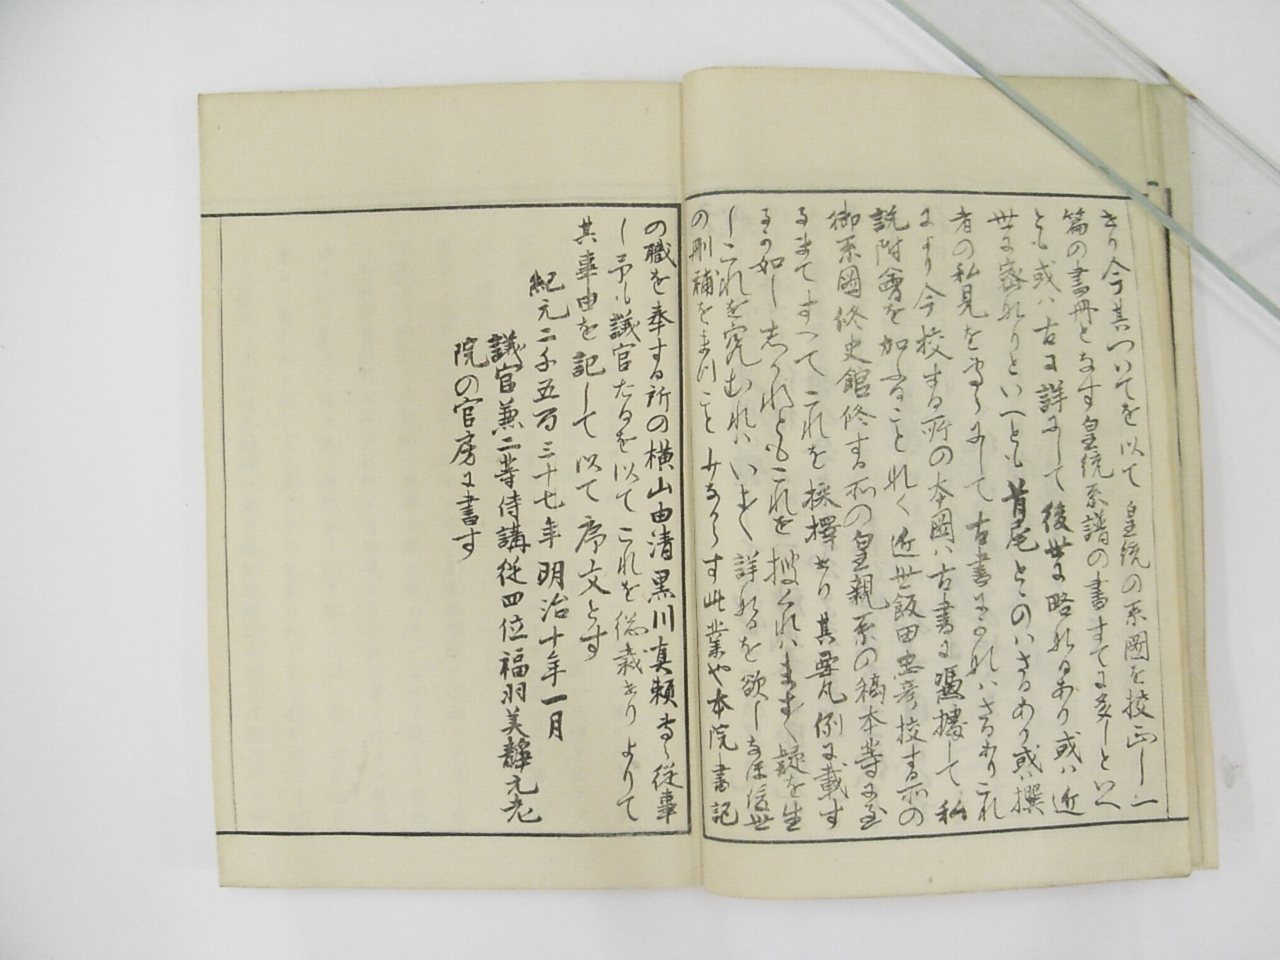 きり今其ついてを以て皇統の系圖を校正し一
篇の書冊となす皇統系譜の書すてに多しといへ
とも或ハ古に詳にして後世に略れるあり或ハ近
世に密れりといへとも首尾とゝのハさるあり或ハ撰
者の私見を にして古書に れハさるありこれ
により今校する所の本圖ハ古書に憑據して私
説附會を加ふることなく近世飯田忠彦校する所の
御系圖修史館修する所の皇親系の稿本等に至
るまてすへてこれを採擇せり其要凡例に載す
るか如ししかれともこれを捜くれハます〱疑を生
しこれを究むれハいよ〱詳なるを欲しなほ後世
の刪補をまつこと す此業や本院書記
の職を奉する所の横山由清黒川真頼専ら從事
し予も議官たるを以てこれを総裁せりよりて
其事由を記して以て序文とす
紀元二千五百三十七年明治十年一月
議官兼二等侍講従四位福羽美靜元老
院の官房に書す